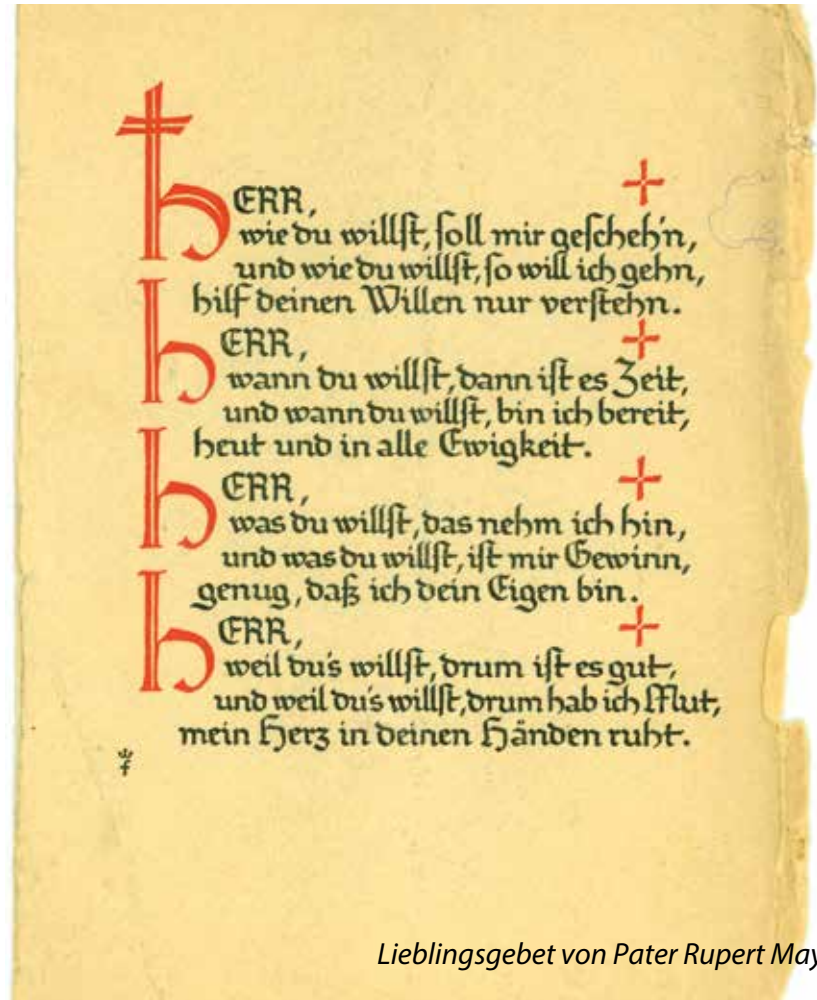 HERR,
wie du willst, soll mir gescheh'n,
und wie du willst, so will ich gehn,
hilf deinen Willen nur verstehn.
HERR,
wann du willst, dann ist es Zeit,
und wann du willst, bin ich bereit,
heut und in alle Ewigkeit.
HERR,
was du willst, das nehm ich hin,
und was du willst, ist mir Gewinn,
genug, daß ich dein Eigen bin.
HERR,
weil du's willst, drum ist es gut,
und weil du's willst, drum hab ich Mut,
mein Herz in deinen Händen ruht.
Lieblingsgebet von Pater Rupert May